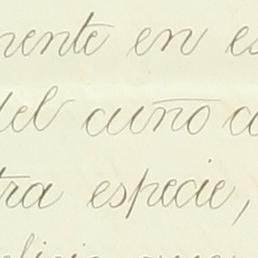 mente en es
del cuño a
tra especie,